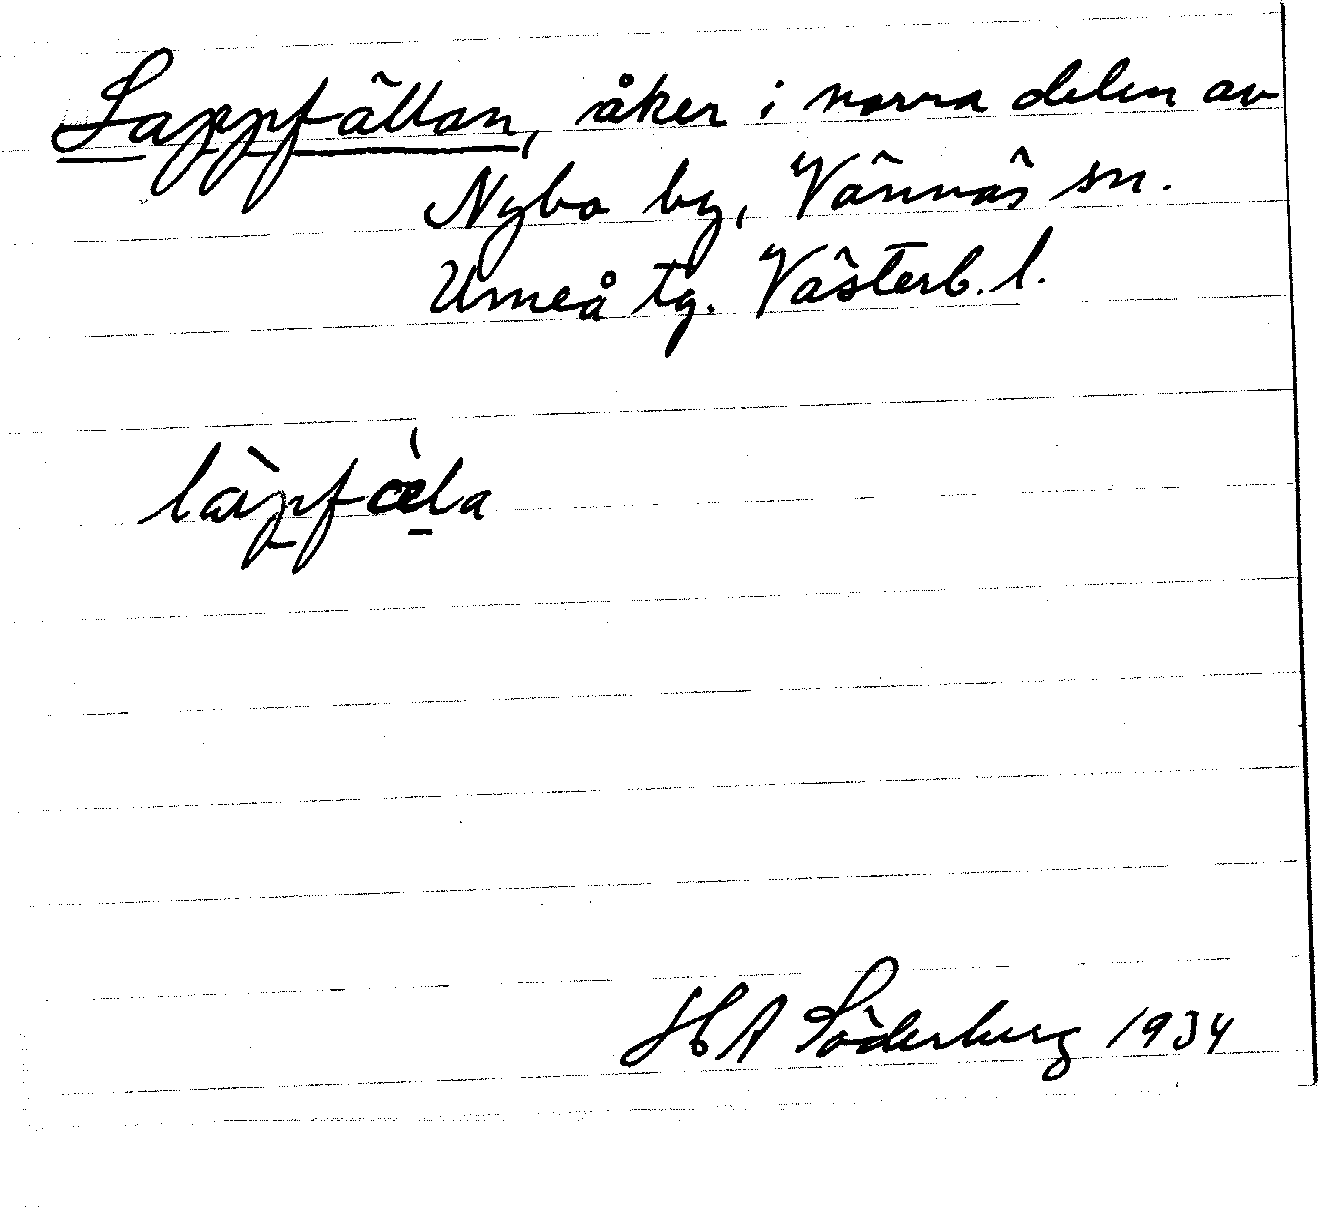 Lappfällan, åker i norra delen av
Nybo by, Vännäs sn.
Umeå tg. Västerb. l.
làpfæ̀la
H A Söderberg 1934